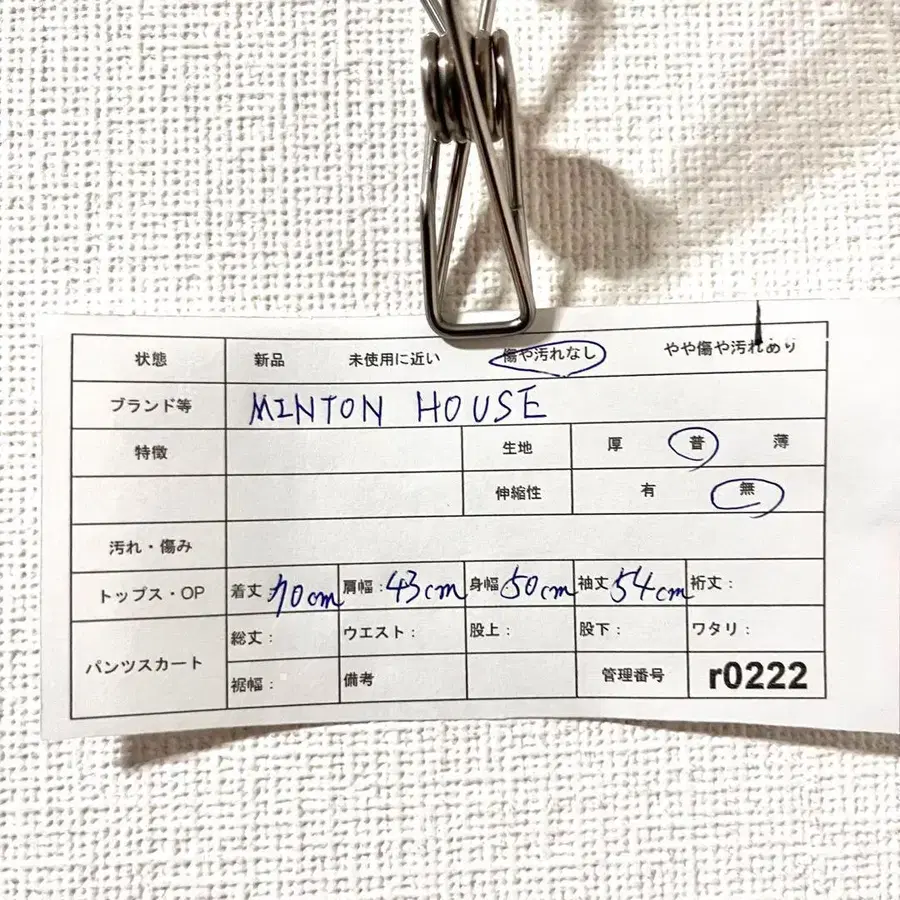 状態 新品 未使用に近い 傷や汚れなし やや傷や汚れあり
ブランド等 MINTON HOUSE
特徴 生地 厚 普 薄
伸縮性 有 無
汚れ・傷み
トップス・OP 着丈:70cm 肩幅:43cm 身幅:50cm 袖丈:54cm 裄丈:
パンツスカート 総丈: ウエスト: 股上: 股下: ワタリ:
裾幅: 備考 管理番号 r0222